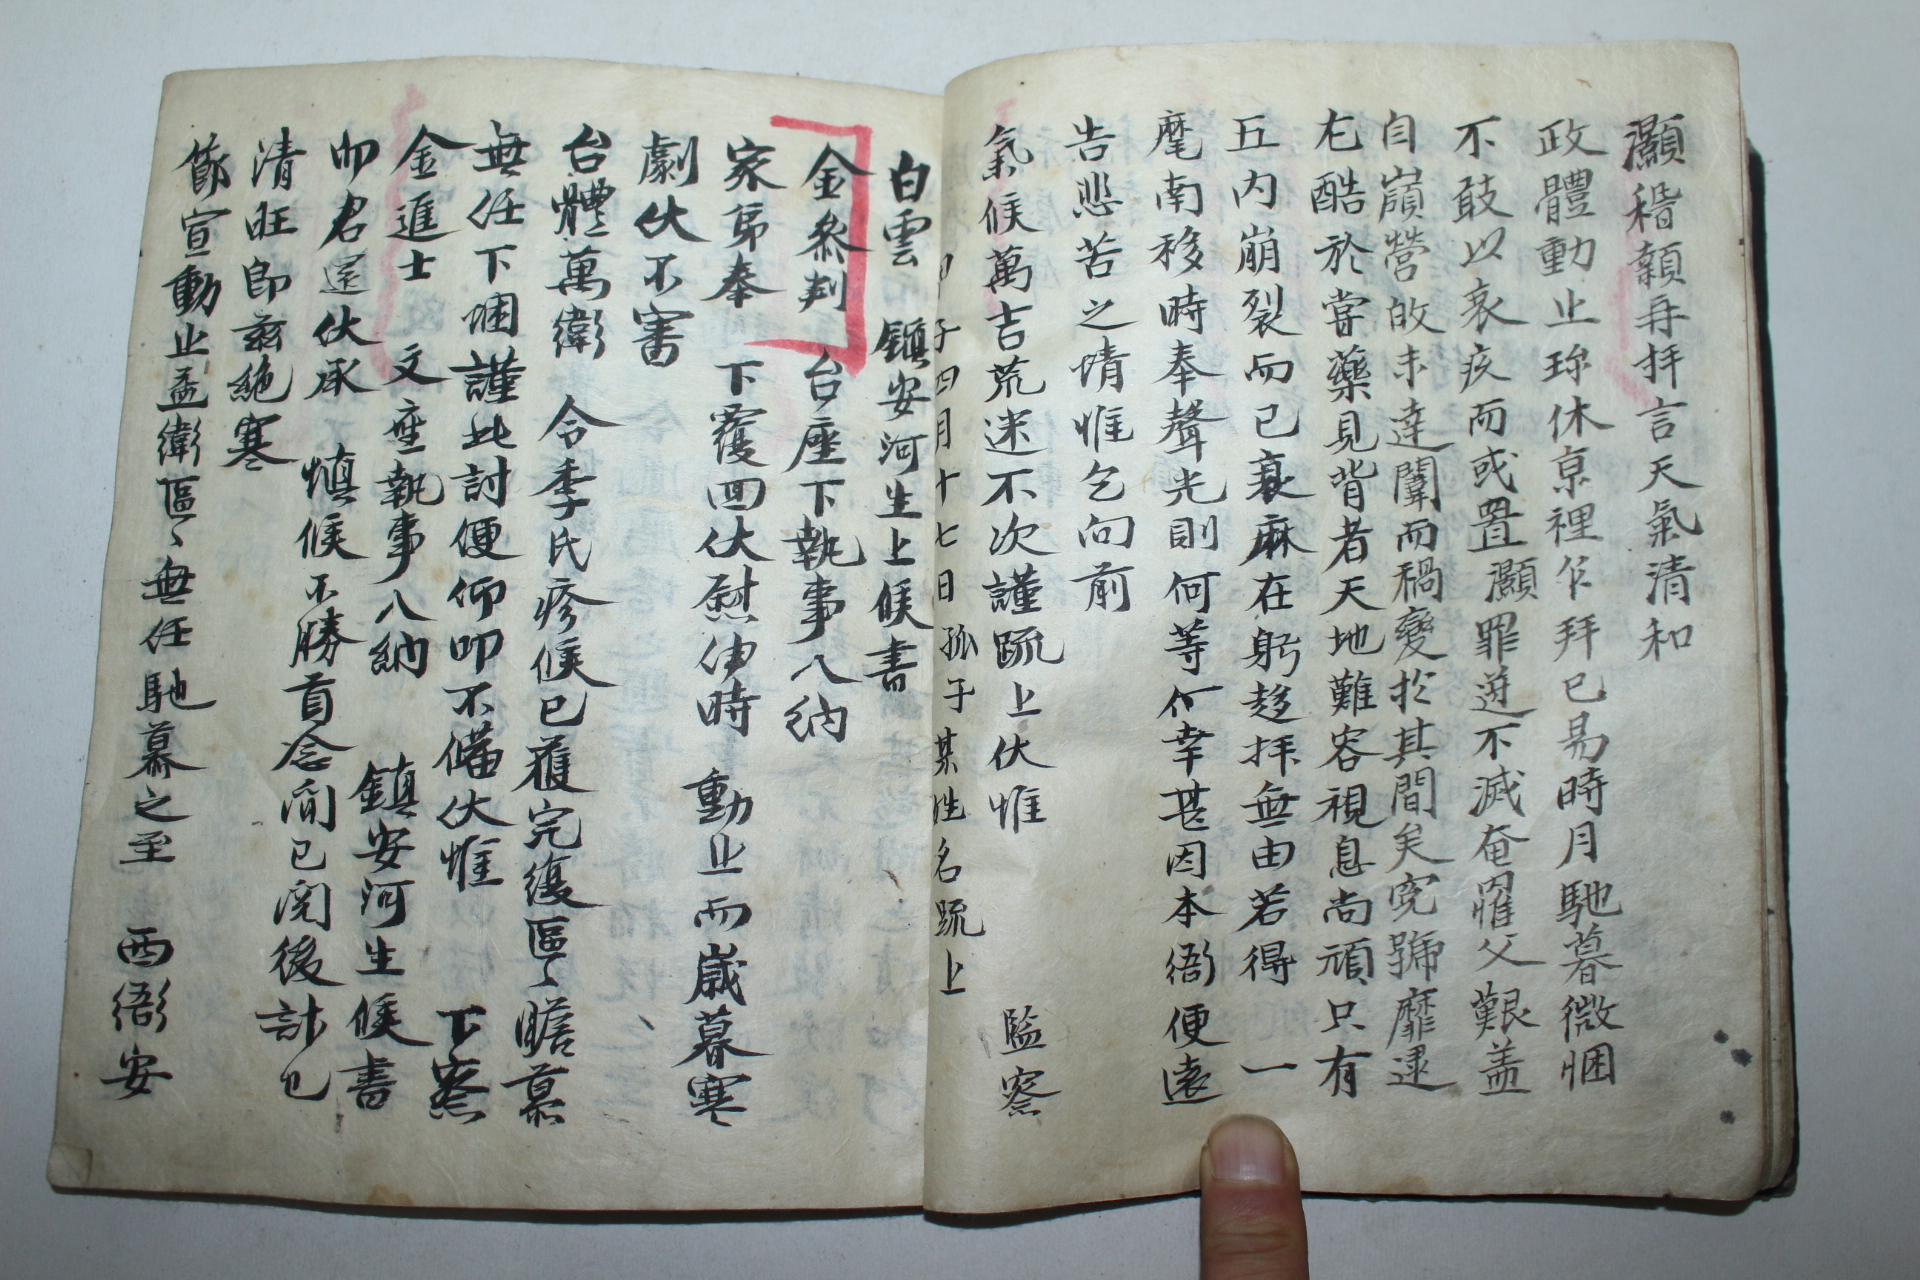 灝稽顙再拜言天氣清和
政體動止珎休京裡乍拜已易時月馳慕微悃
不敢以衰疚而或置灝罪逆不滅奄罹父艱盖
自嶺營啟未達闈而禍變於其間矣寃號靡逮
尤酷於嘗藥見背者天地難容視息尚頑只有
五內崩裂而已衰麻在躬趍拜無由若得一
麾南移時奉聲光則何等何幸甚因本衙便遠
告悲苦之情惟乞向前
氣候萬吉荒迷不次謹疏上伏惟 監察
甲子四月十七日孤子某姓名疏上
白雲 鎮安河生上候書
金叅判 台座下執事入納
家弟奉 下覆回伏慰伸時 動止而歲暮寒
劇伏不審
台體萬衛 令季氏疹候已獲完復區〻瞻慕
無任下悃謹此討便仰叩不備伏惟 下察
金進士 文座執事入納 鎮安河生候書
而君還伏承 愼候不勝貢念間已閱後計已
清旺卽玆絶寒
篩宣動止益衛區〻無任馳慕之至 西衙安